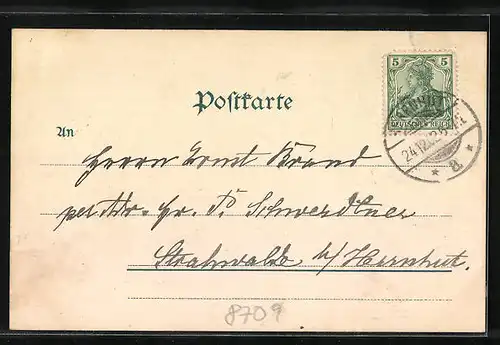 5 5
DEUTSCHES REICH
Postkarte
24.12.02
* a *
An
Herrn Ernst
per Adr. Hr. P. Schwerdtner
Strahwalde b/ Herrnhut.
8709